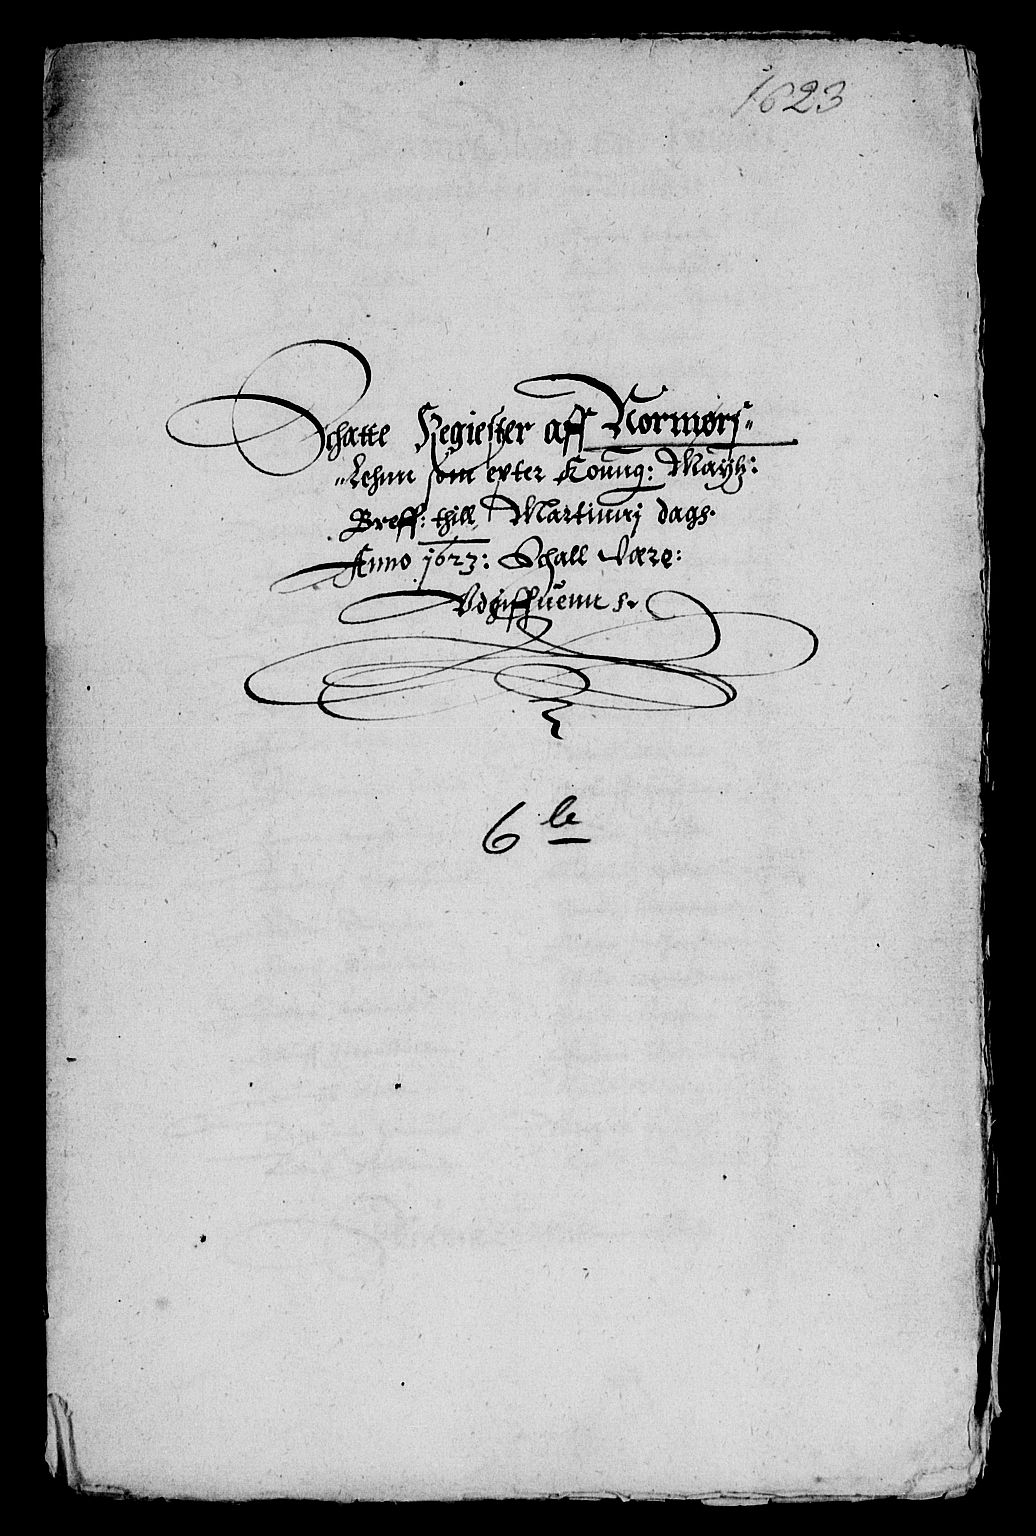 1623
Schatte Regiester aff Normørs=
=Lehnn som epter Konng: Mayh:
Breff: thill Martinnj dags
Anno 1623: Schall være:
Vdgiffuenn
6 le